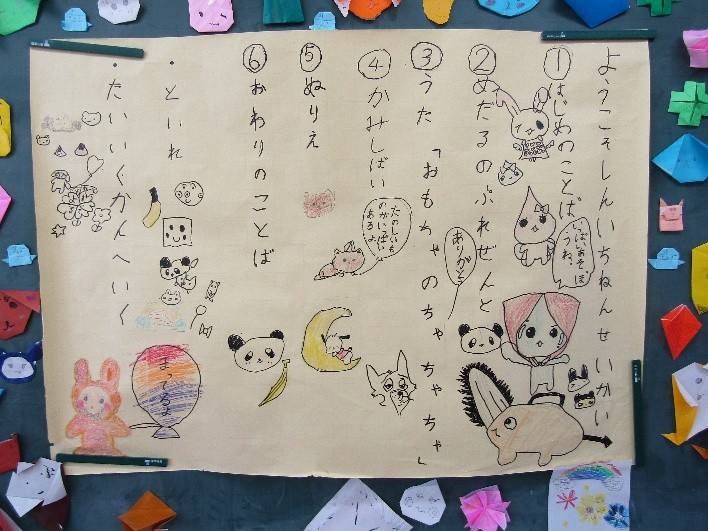 ようこそしんいちねんせいかい
①はじめのことば
②めだるのぷれぜんと
③うた「おもちゃのちゃちゃちゃ」
④かみしばい
⑤ぬりえ
⑥おわりのことば
・といれ
・たいいくかんへいく
いっぱいあそぼ
うね。
ありがとう
たのしいも
のがいっぱい
あるよ
まってるよ